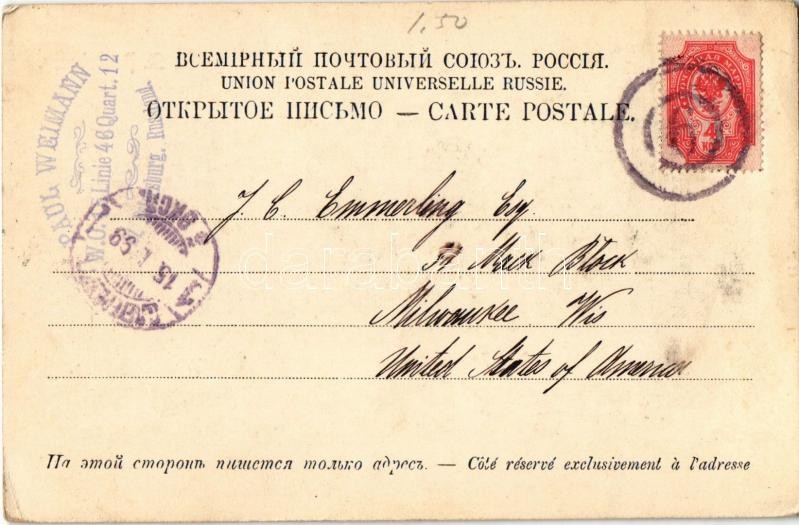 1.50
ВСЕМІРНЫЙ ПОЧТОВЫЙ СОЮЗЪ. РОССІЯ.
UNION POSTALE UNIVERSELLE RUSSIE.
ОТКРЫТОЕ ПИСЬМО — CARTE POSTALE.
PAUL WEIMANN
W.O. Linie 46 Quart. 12
burg. Russland.
15
99
4
КОП
J. C. Emmerling Esq.
Mack Block
Milwaukee Wis
United States of America
darabanth
На этой сторонѣ пишется только адресъ. — Côté réservé exclusivement à l'adresse